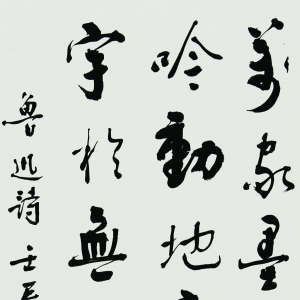 萬家墨
吟動地
宇於無
魯迅詩壬